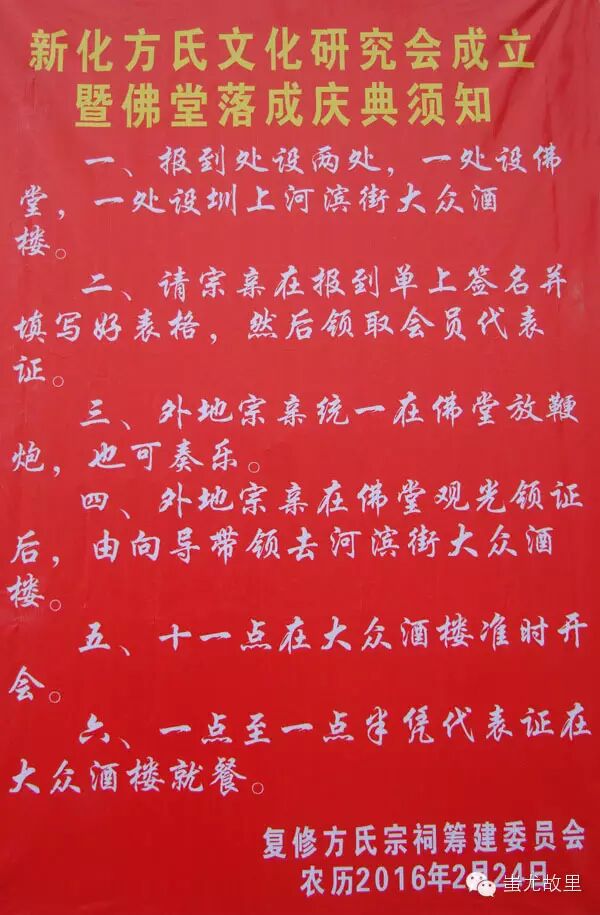 新化方氏文化研究会成立
暨佛堂落成庆典须知
一、报到处设两处，一处设佛
堂，一处设圳上河滨街大众酒
楼。
二、请宗亲在报到单上签名并
填写好表格，然后领取会员代表
证。
三、外地宗亲统一在佛堂放鞭
炮，也可奏乐。
四、外地宗亲在佛堂观光领证
后，由向导带领去河滨街大众酒
楼。
五、十一点在大众酒楼准时开
会。
六、一点至一点半凭代表证在
大众酒楼就餐。
复修方氏宗祠筹建委员会
农历2016年2月24日
蚩尤故里